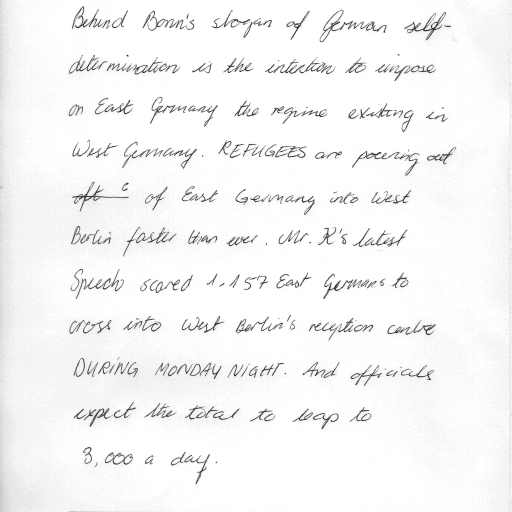 Behind Bonn's slogan of German self-
determination is the intention to impose
on East Germany the regime existing in
West Germany. REFUGEES are pouring out
of East Germany into West
Berlin faster than ever. Mr. K's latest
Speech scared 1,157 East Germans to
cross into West Berlin's reception centre
DURING MONDAY NIGHT. And officials
expect the total to leap to
3,000 a day.